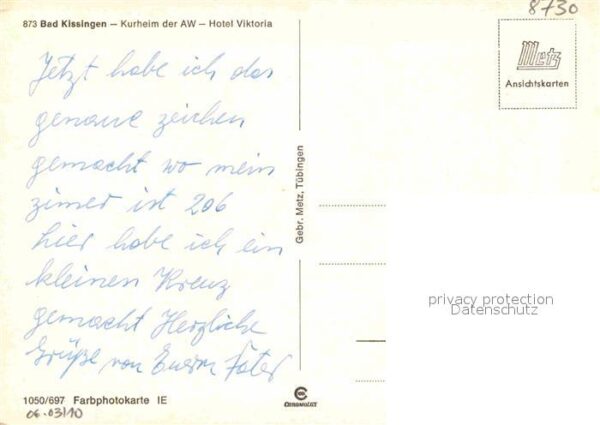 8730
873 Bad Kissingen – Kurheim der AW – Hotel Viktoria
Metz
Ansichtskarten
Jetzt habe ich das
genaue zeichen
gemacht wo mein
zimer ist 206
hier habe ich ein
kleinen Kreuz
gemacht Herzliche
Grüße von Euerm Fater
Gebr. Metz, Tübingen
privacy protection
Datenschutz
1050/697 Farbphotokarte IE
06.03/10